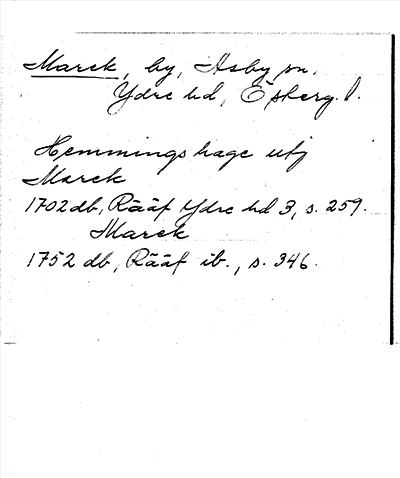 Marek, by, Asby sn,
Ydre hd, Östherg. l.
Hemmingshage utj
Marek
1702 db, Rääf Ydre hd 3, s. 259.
Marek
1752 db, Rääf ib., s. 346.